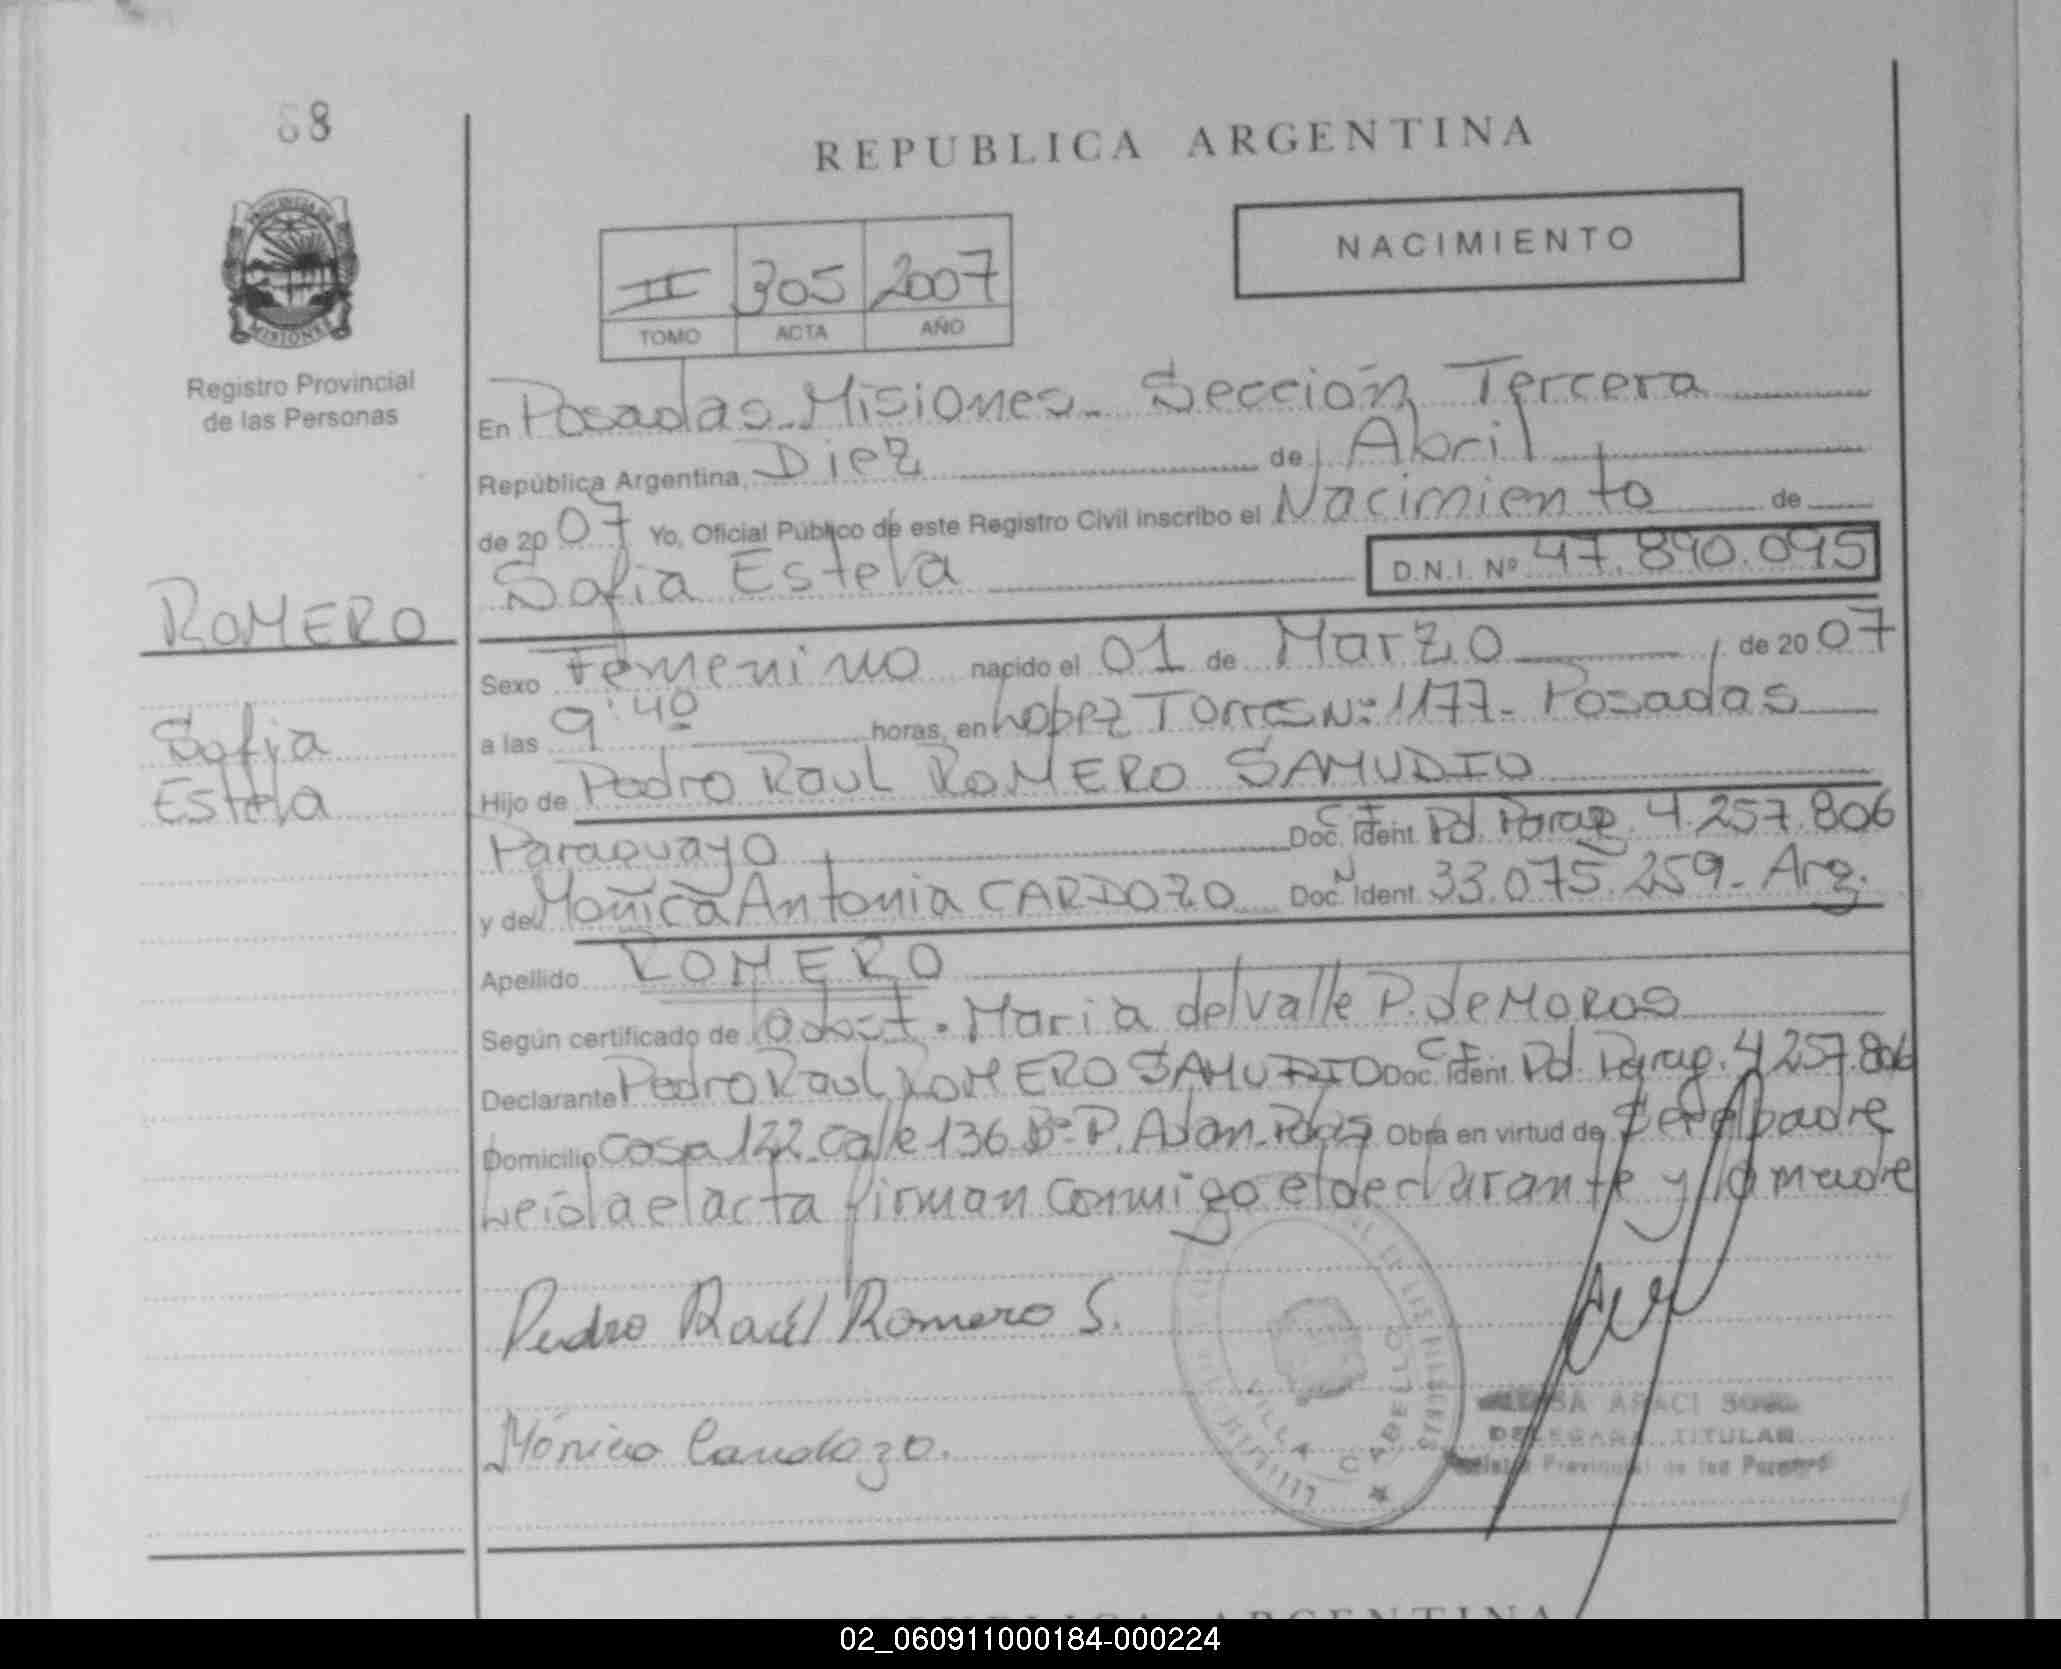 68
REPUBLICA ARGENTINA
NACIMIENTO
II 305 2007
TOMO ACTA AÑO
PROVINCIA DE
MISIONES
Registro Provincial
de las Personas
En Posadas-Misiones- Sección Tercera
República Argentina, Diez de Abril
de 2007 Yo, Oficial Público de este Registro Civil inscribo el Nacimiento de
Sofia Estela D.N.I. Nº 47.890.095
ROMERO
Sofia
Estela
Sexo Femenino nacido el 01 de Marzo de 2007
a las 9:40 horas, en Lopez Torres Nº 1177- Posadas
Hijo de Pedro Raul ROMERO SAMUDIO
Paraguayo Doc. Ident. C I Pol. Parag. 4.257.806
y de Monica Antonia CARDOZO Doc. N Ident. 33.075.259- Arg.
Apellido ROMERO
Según certificado de la obst. Maria del Valle P. de MOROS
Declarante Pedro Raul ROMERO SAMUDIO Doc. C I Ident. Pol. Parag. 4.257.806
Domicilio Casa 122 Calle 136 Bº P. Adan-Pdas Obra en virtud de Ser el padre
Leida el acta firman conmigo el declarante y la madre
Pedro Raúl Romero S.
Mónica Cardozo.
VILLA CABELLO
ARACI
DELEGADA TITULAR
Registro Provincial de las Personas
REPUBLICA ARGENTINA
02_060911000184-000224